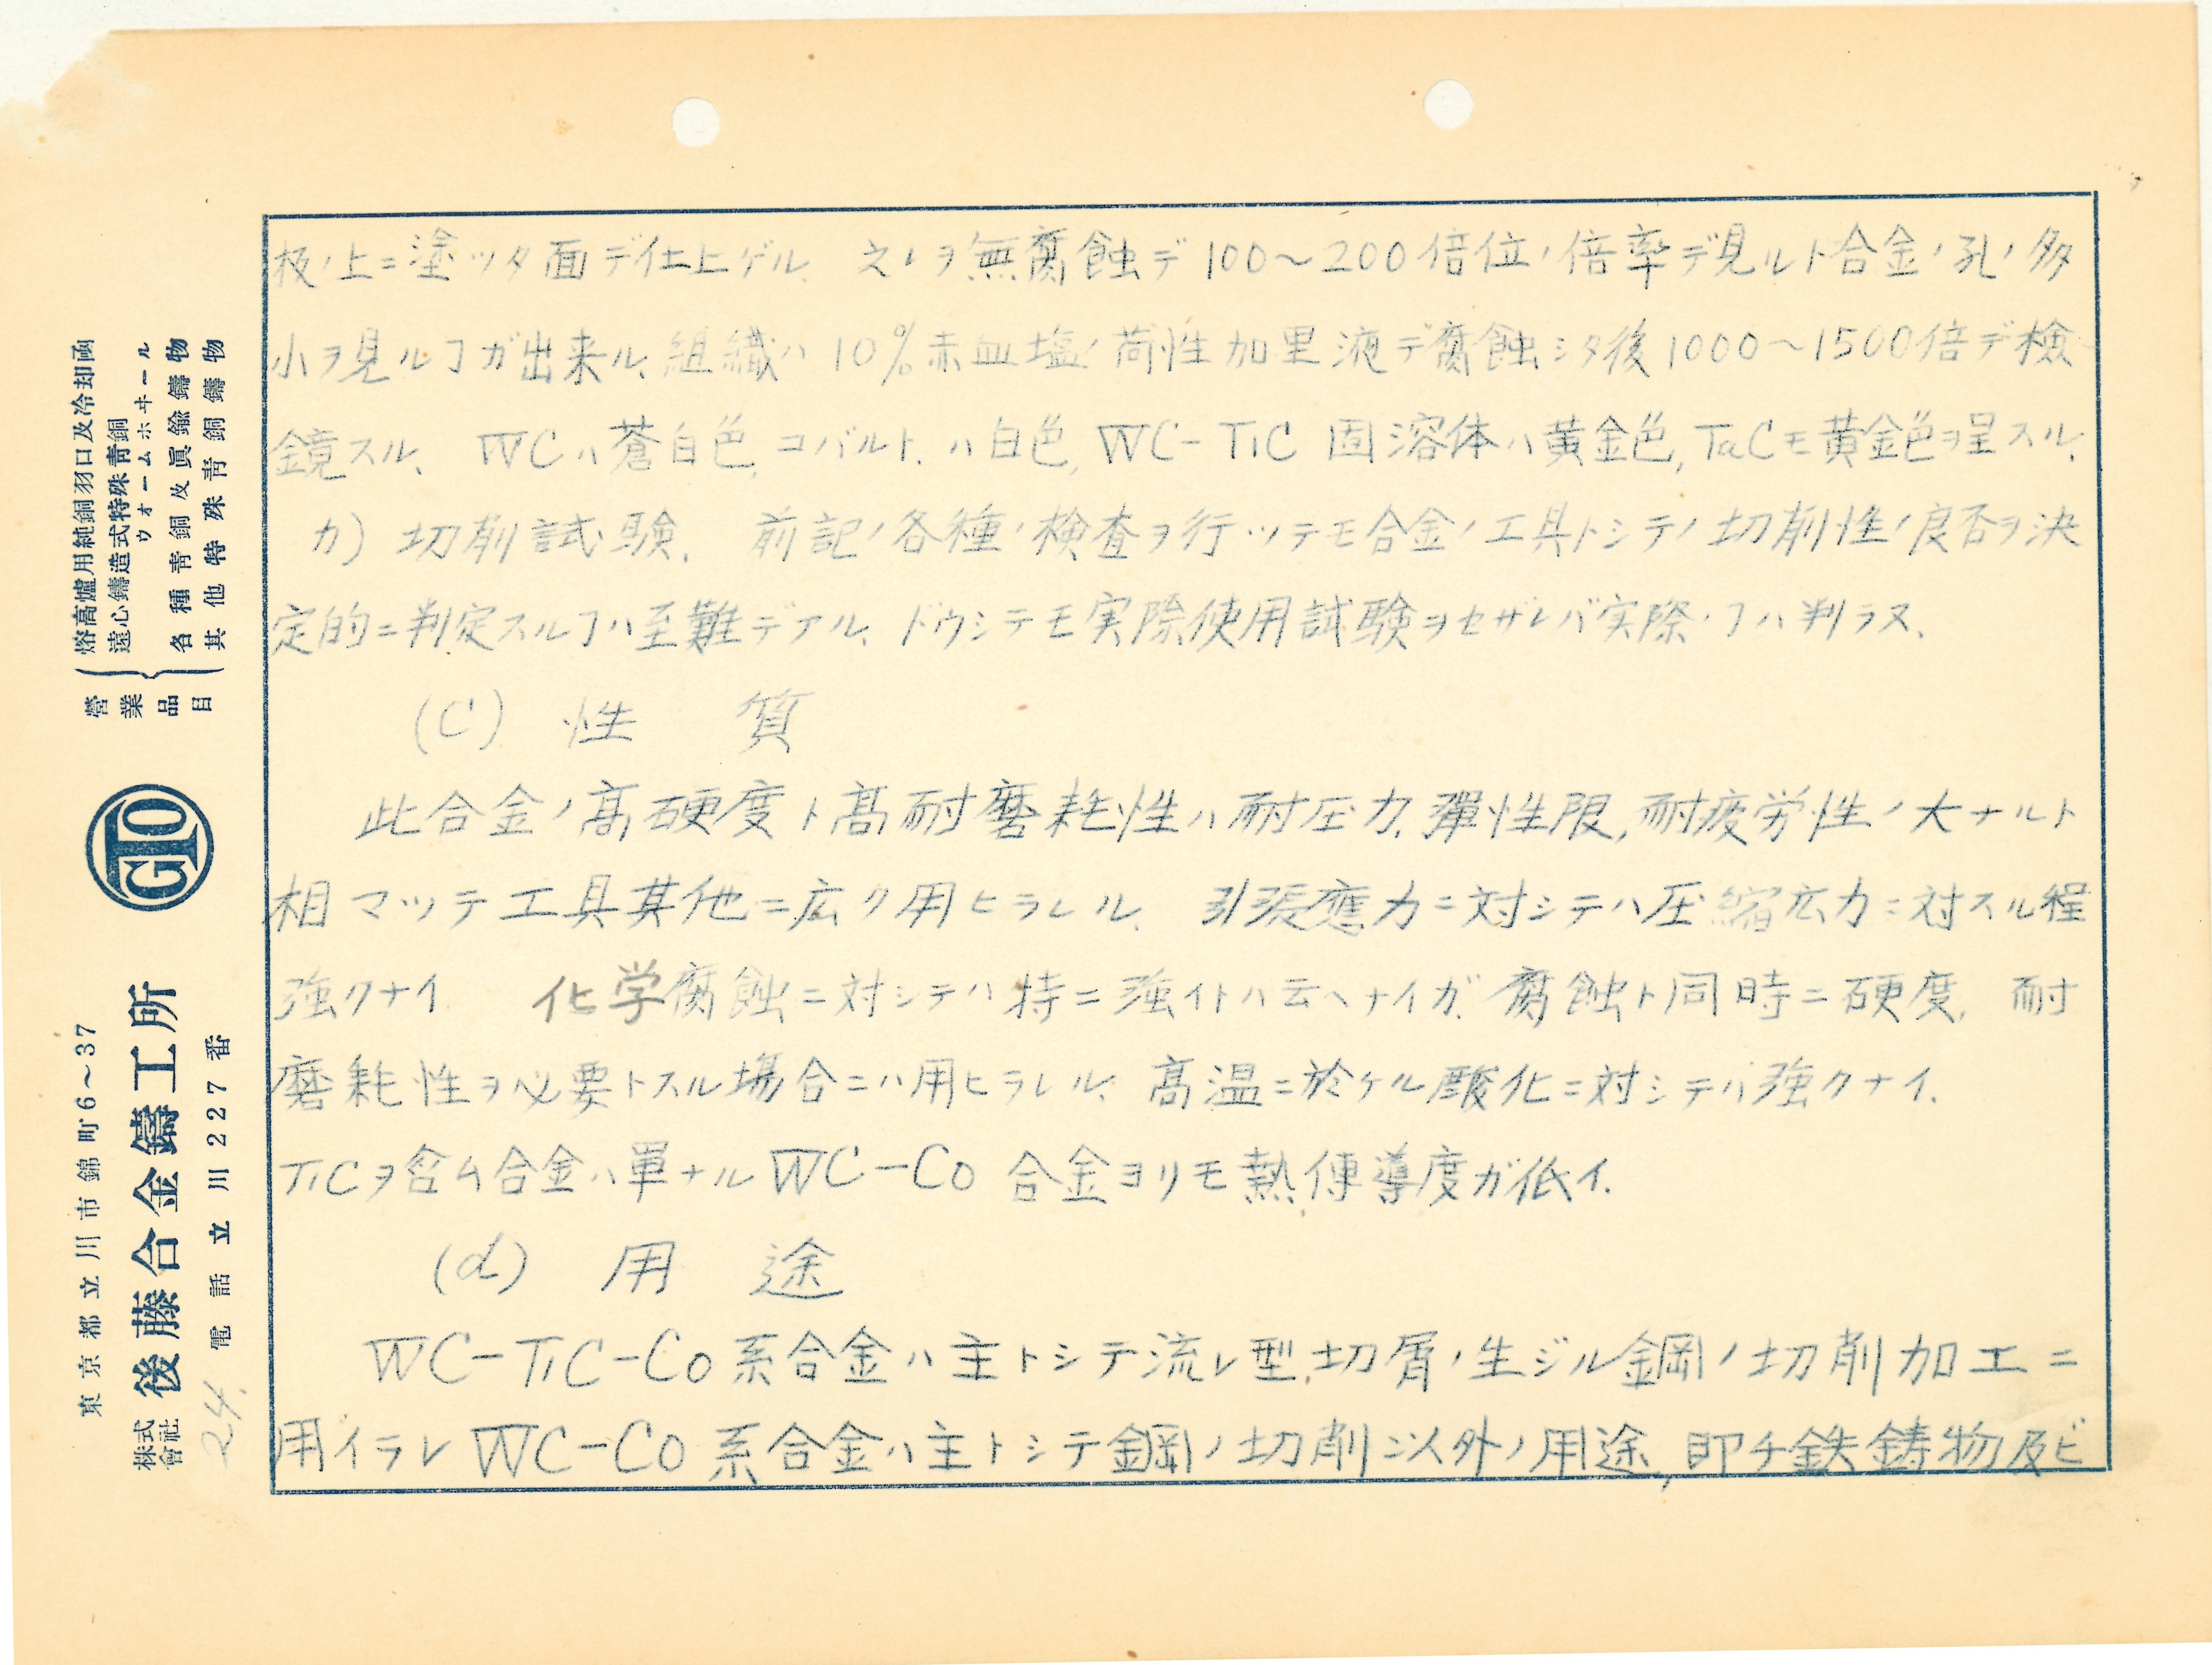 板ノ上ニ塗ッタ面デ仕上ゲル、之レヲ無腐蝕デ100～200倍位ノ倍率デ見ルト合金ノ孔ノ多
小ヲ見ルヿガ出来ル、組織ハ10%赤血塩ノ苛性加里液デ腐蝕シタ後1000～1500倍デ検
鏡スル、WCハ蒼白色、コバルト、ハ白色、WC-TiC固溶体ハ黄金色、TaCモ黄金色ヲ呈スル、
カ) 切削試験、前記ノ各種ノ検査ヲ行ッテモ合金ノ工具トシテノ切削性ノ良否ヲ決
定的ニ判定スルヿハ至難デアル、ドウシテモ実際使用試験ヲセザレバ実際ノヿハ判ラヌ、
(C) 性 質
此合金ノ高硬度ト高耐磨耗性ハ耐圧力、彈性限、耐疲労性ノ大ナルト
相マッテ工具其他ニ広ク用ヒラレル、引張應力ニ対シテハ圧縮応力ニ対スル程
強クナイ 化学腐蝕ニ対シテハ特ニ強イトハ云ヘナイガ、腐蝕ト同時ニ硬度、耐
磨耗性ヲ必要トスル場合ニハ用ヒラレル、高温ニ於ケル酸化ニ対シテハ強クナイ、
TiCヲ含ム合金ハ單ナルWC-Co合金ヨリモ熱傳導度ガ低イ、
(d) 用 途
WC-TiC-Co系合金ハ主トシテ流レ型、切屑ノ生ジル鋼ノ切削加工ニ
用イラレWC-Co系合金ハ主トシテ鋼ノ切削以外ノ用途、即チ鉄鋳物及ビ
營業品目
熔高爐用純銅羽口及冷却函
遠心鑄造式特殊青銅ウォームホヰール
各種青銅及眞鍮鑄物
其他特殊青銅鑄物
GTO
東京都立川市錦町6～37
株式會社 後藤合金鑄工所
電話立川227番
24.